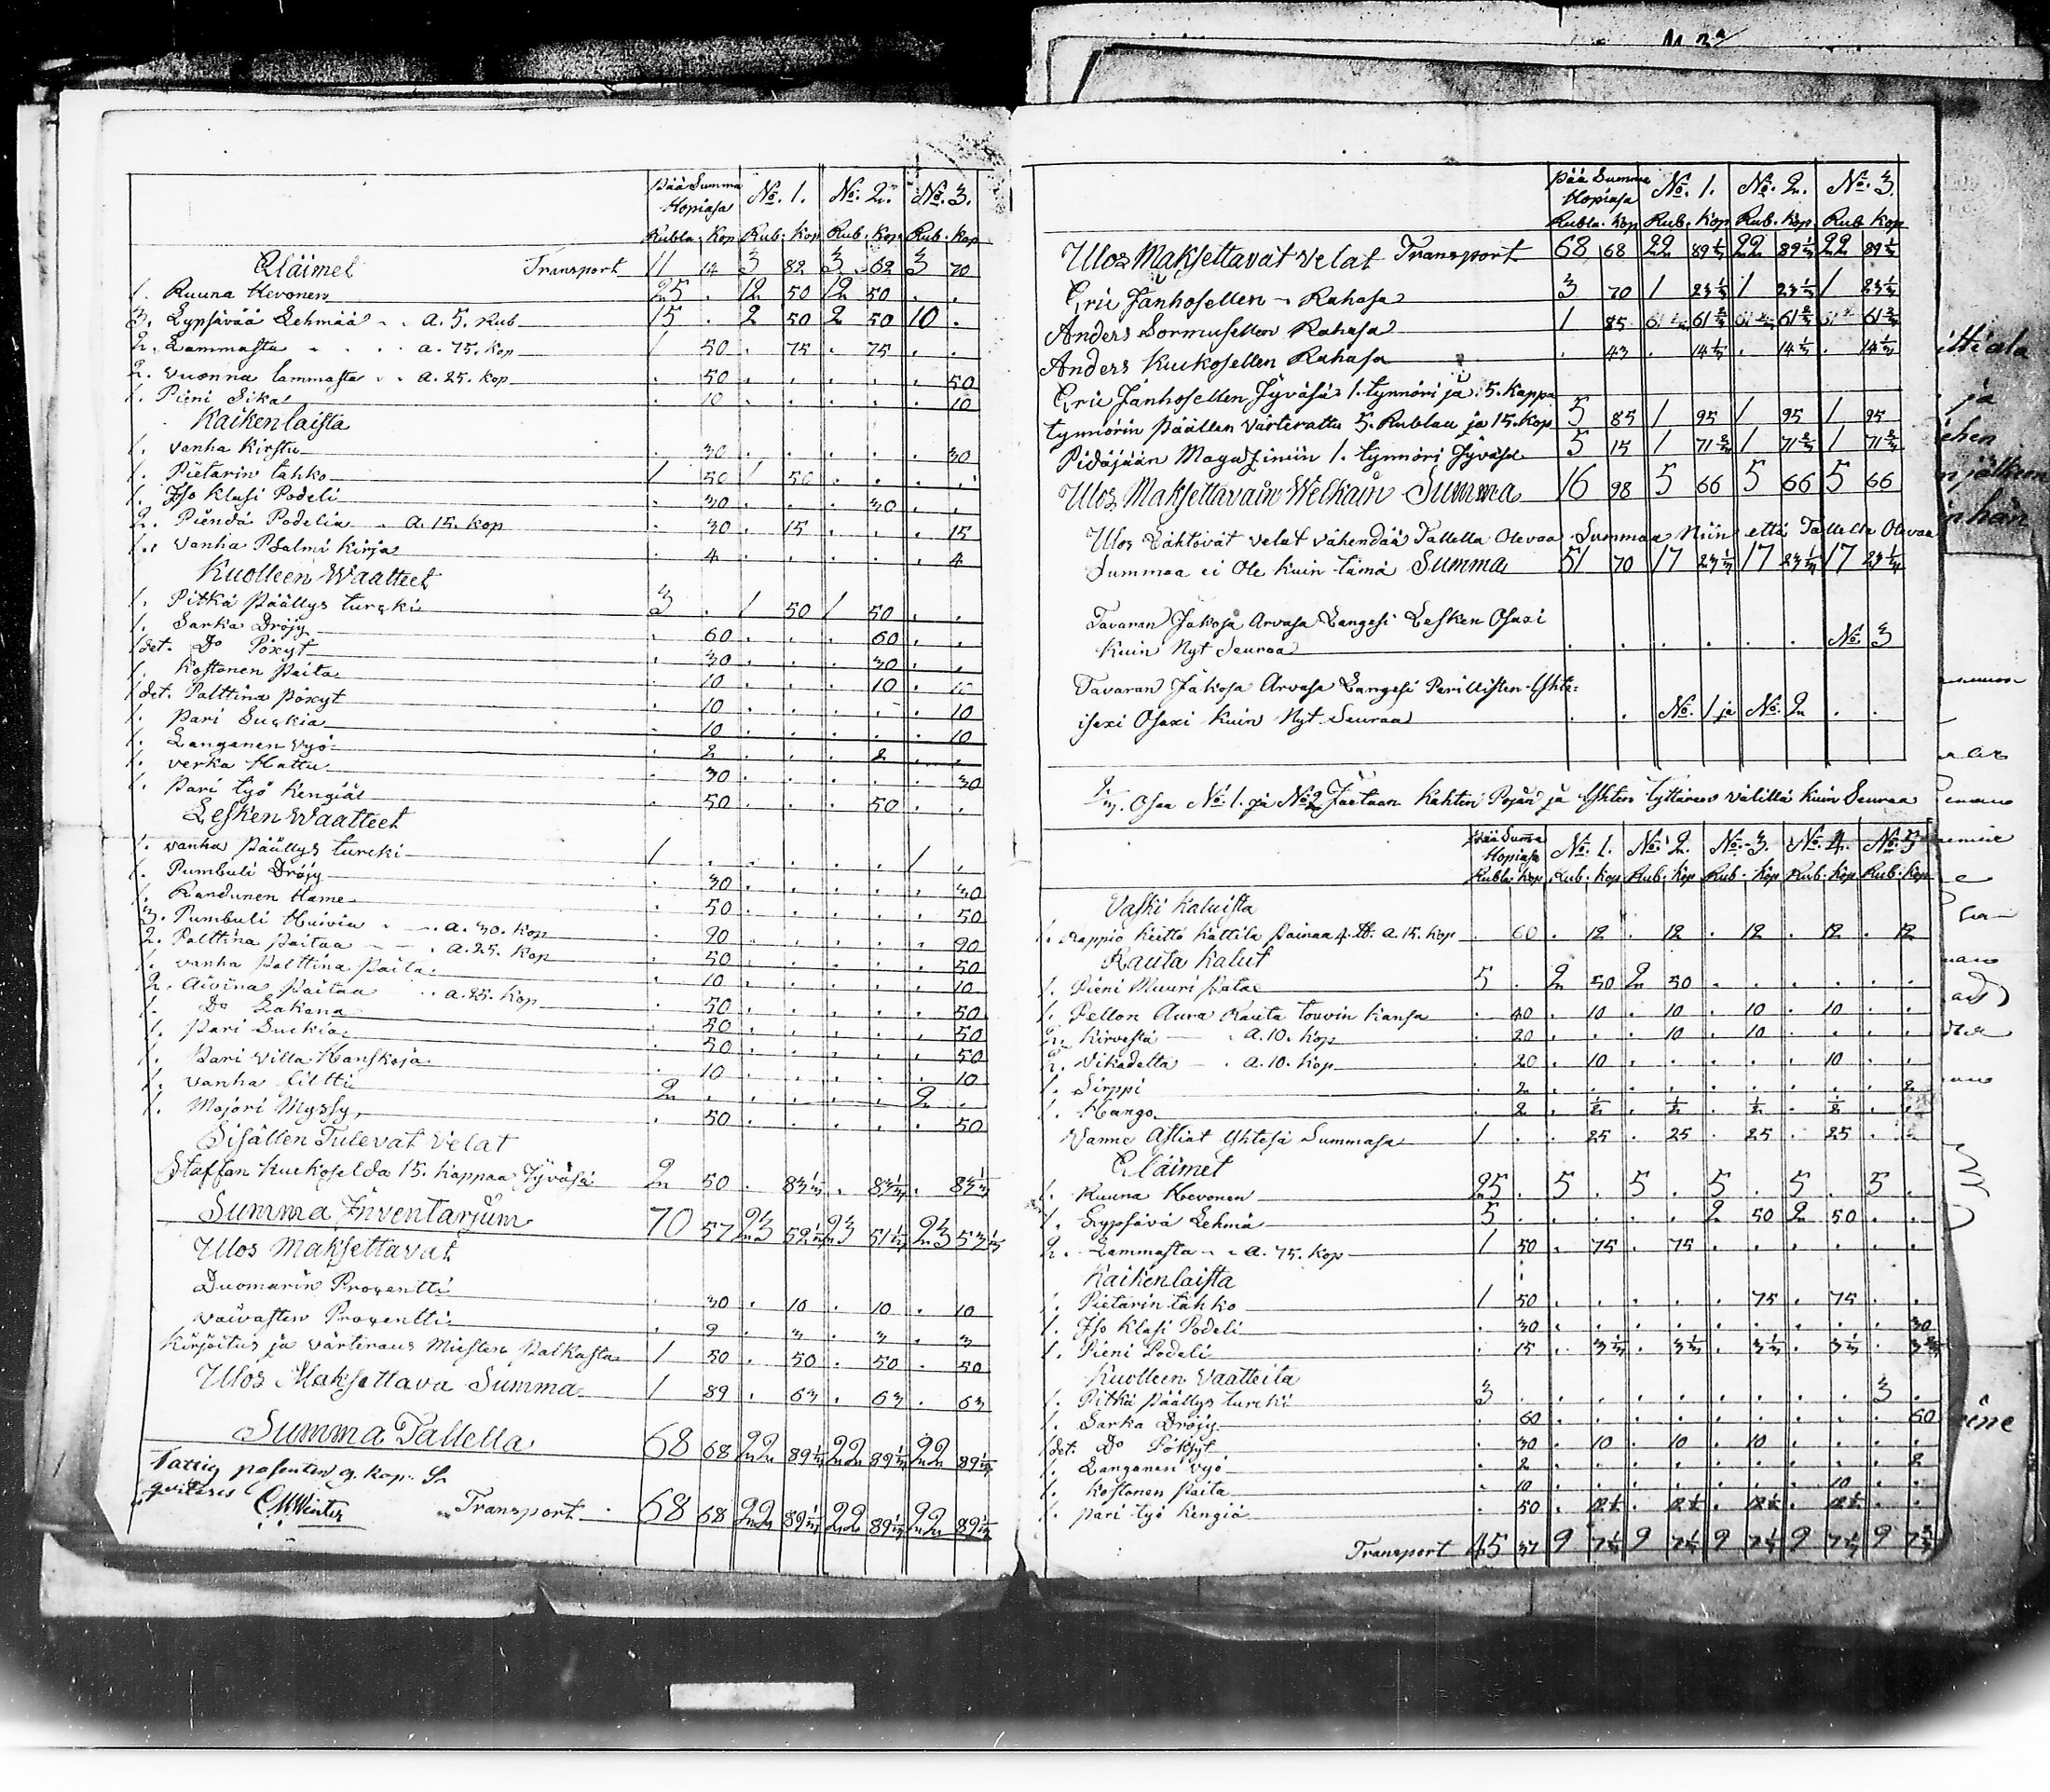 Pää Summa Hopiasa No. 1. No. 2. No. 3.
Rubla. Kop Rub. Kop Rub. Kop Rub. Kop
Eläimet Transport 11 14 3 82 3 62 3 70
1. Ruuna Hevonen 25 . 12 50 12 50 . .
3. Lypsävää Lehmää . . a. 5. Rub 15 . 2 50 2 50 10 .
2. Lammasta . . . . a. 75. Kop 1 50 . 75 . 75 . .
2. Vuonna lammasta . . a. 25. Kop . 50 . . . . . 50
1. Pieni Sika . 10 . . . . . 10
Kaikenlaista
1. Vanha Kirstu . 30 . . . . . 30
1. Pietarin tahko 1 50 1 50 . . . .
1. Iso Klasi Podeli . 30 . . . 30 . .
2. Piendä Podelia . a. 15. Kop . 30 . 15 . . . 15
1. Vanha Psalmi Kirja . 4 . . . . . 4
Kuolleen Waatteet
1. Pitkä Päällys turcki 3 . 1 50 1 50 . .
1. Sarka Dröjy . 60 . . . 60 . .
1 det. Do Pöxyt . 30 . . . 30 . .
1. Kostonen Paita . 10 . . . 10 .
1 det. Palttina pöxyt . 10 . . . . . 10
1. Pari Suckia . 10 . . . . . 10
1. Langanen Vyö . 2 . . . 2 . .
1. Verka Hattu . 30 . . . . . 30
1. Pari työ Kengiät . 50 . . . 50 . .
Lesken Waatteet
1. Vanha Päällys turcki 1 . . . . . 1 .
1. Pumbuli Dröjy . 30 . . . . . 30
1. Randunen Hame . 50 . . . . . 50
3. Pumbuli Huivia . a. 30. Kop . 90 . . . . . 90
2. Palttina Paitaa . a. 25. Kop . 50 . . . . . 50
1. Vanha Palttina Paita . 10 . . . . . 10
2. Aivina Paitaa . . a. 25. Kop . 50 . . . . . 50
1. Do Lakana . 50 . . . . . 50
1. Pari Suckia . 50 . . . . . 50
1. Pari Villa Hanskoja . 10 . . . . . 10
1. Vanha Filtti 2 . . . . . 2 .
1. Majori Myssy . 50 . . . . . 50
Sisällen Tulevat Velat
Staffan Kuckoselda 15. Kappaa Jyväsä 2 50 . 83 1/3 . 83 1/3 . 83 1/3
Summa Inventarjum 70 57 23 52 1/3 23 51 1/3 23 53 1/3
Ulos Maksettavat
Duomarin Procentti . 30 . 10 . 10 . 10
Vaivasten Procentti . 9 . 3 . 3 . 3
Kirjoitus ja Värteraus Miesten Palkasta 1 50 . 50 . 50 . 50
Ulos Maksettava Summa 1 89 . 63 . 63 . 63
Summa Tallella 68 68 22 89 1/3 22 89 1/3 22 89 1/3
Fattig 9. Kop. Sr
qvitteras CMWinter Transport 68 68 22 89 1/3 22 89 1/3 22 89 1/3
Pää Summa Hopiasa No. 1. No. 2. No. 3.
Rubla. Kop Rub. Kop Rub. Kop Rub Kop
Ulos Maksettavat Velat Transport 68 68 22 89 1/3 22 89 1/3 22 89 1/3
Eric Jänhosellen Rahasa 3 70 1 23 1/3 1 23 1/3 1 23 1/3
Anders Sormusellen Rahasa 1 85 . 61 2/3 . 61 2/3 . 61 2/3
Anders Kuckosellen Rahasa . 43 . 14 1/3 . 14 1/3 . 14 1/3
Eric Jänhosellen Jyväsä 1. tynnöri ja 5. Kappa
tynnörin Päällen Värterattu 5. Rublaa ja 15. Kop 5 85 1 95 1 95 1 95
Pidäjään Magazimiin 1. tynnöri Jyväsä 5 15 1 71 2/3 1 71 2/3 1 71 2/3
Ulos Maksettavain Welkain Summa 16 98 5 66 5 66 5 66
Ulos Lähtövät Velat Vähendää Tallella Olevaa Summaa Niin että Tallella Olevaa
Summaa ei Ole kuin tämä Summa 51 70 17 23 1/3 17 23 1/3 17 23 1/3
Tavaran Jakosa Arvasa Langesi Lesken Osaxi
Kuin Nyt Seuraa . . . . . . No. 3
Tavaran Jakosa Arvasa Langesi Perillisten Yhte-
isexi Osaxi Kuin Nyt Seuraa . . No. 1 ja No. 2 . .
2/3. Osaa No. 1. ja No 2 Jaetaan Kahten Pojan ja Yhten tyttären Välillä Kuin Seuraa
Pää Summa Hopiasa No. 1. No. 2. No. 3. No. 4. No. 5
Rubla. Kop Rub. Kop Rub. Kop Rub. Kop Rub. Kop Rub. Kop
Vaski Kaluista
1. Kappio Keitto Kattila Painaa 4. lb. a. 15. Kop . 60 . 12 . 12 . 12 . 12 . 12
Rauta Kalut
1. Pieni Muuri Pata 5 . 2 50 2 50 . . . . . .
1. Pellon Aura Rauta touvin Kansa . 40 . 10 . 10 . 10 . 10 . .
2. Kirvestä . a. 10. Kop . 20 . . . 10 . 10 . . . .
2. Vikadetta . a. 10. Kop . 20 . 10 . . . . . 10 . .
1. Sirppi . 2 . . . . . . . . . 2
1. Hango . 2 . 1/2 . 1/2 . 1/2 . 1/2 . .
Vanne Astiat Yhtesä Summasa 1 . . 25 . 25 . 25 . 25 . .
Eläimet
1. Ruuna Hevonen 25 . 5 . 5 . 5 . 5 . 5 .
1. Lypsävä Lehmä 5 . . . . . 2 50 2 50 . .
2. Lammasta . . a. 75. Kop 1 50 . 75 . 75 . . . . . .
Kaikenlaista
1. Pietarin tahko 1 50 . . . . . 75 . 75 . .
1. Iso Klasi Podeli . 30 . . . . . . . . . 30
1. Pieni Podeli . 15 . 3 1/3 . 3 1/3 . 3 1/3 . 3 1/3 .
Kuolleen Vaatteita
1. Pitkä Päällys turcki 3 . . . . . . . . . 3 .
1. Sarka Dröjy . 60 . . . . . . . . . 60
1 det. Do Pöksyt . 30 . 10 . 10 . 10 . . . .
1. Langanen Vyö . 2 . . . . . . . . . 2
1. Kostonen Paita . 10 . . . . . . . 10 . .
1. Pari työ Kengiä . 50 . 12 1/2 . 12 1/2 . 12 1/2 . 12 1/2 . .
Transport 45 37 9 7 1/3 9 7 1/3 9 7 1/3 9 7 1/3 9